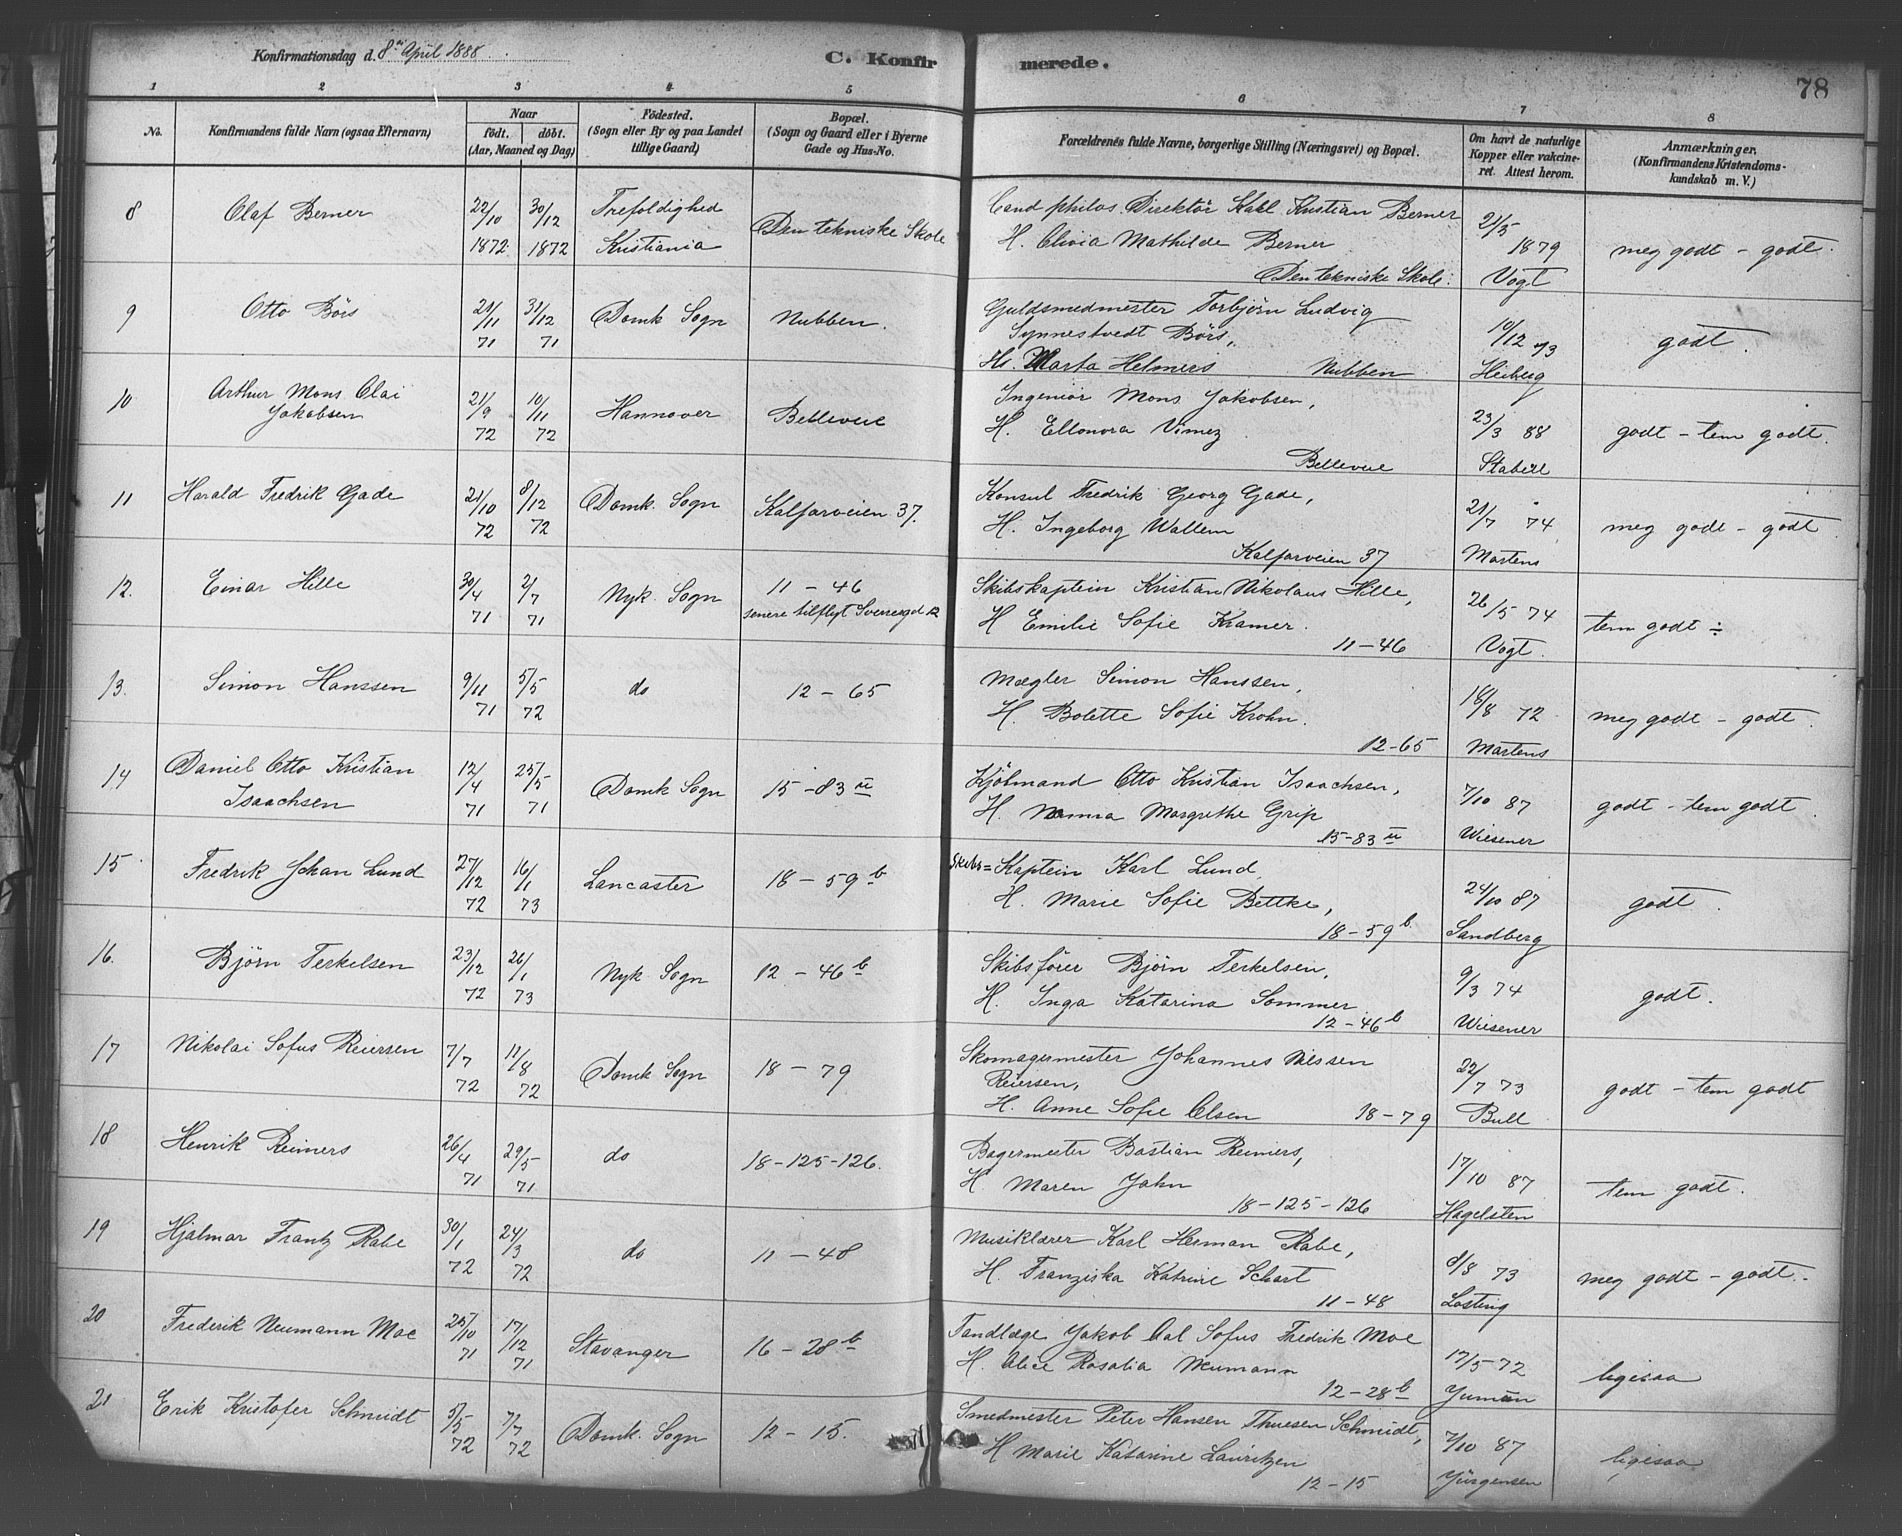 Konfirmationsdag d. 8de April 1888
C. Konfirmerede.
78
1 2 3 3 4 5 6 7 8
No.
Konfirmandens fulde Navn (ogsaa Efternavn)
Naar
födt. döbt.
(Aar, Maaned og Dag)
Födested.
(Sogn eller By og paa Landet
tillige Gaard)
Bopæl.
(Sogn og Gaard eller i Byerne
Gade og Hus-No.
Forældrenes fulde Navne, borgerlige Stilling (Næringsvei) og Bopæl.
Om havt de naturlige
Kopper eller vakcine-
ret. Attest herom.
Anmærkninger.
(Konfirmandens Kristendoms-
kundskab m. V.)
8 Olaf Berner 22/10 1872 30/12 1872 Trefoldighed Kristiania Den tekniske Skole
Cand philos. Direktör Karl Kristian Berner
H. Olivia Mathilde Berner
Den tekniske Skole.
2/5 1879 Vogt
meg godt - godt.
9 Otto Börs 21/11 71 31/12 71 Domk Sogn Nubben.
Guldsmedmester Torbjörn Ludvig
Synnestvedt Börs,
H. Marta Helmers Nubben
10/12 73 Heiberg
godt.
10 Arthur Mons Olai
Jakobsen 21/9 72 10/11 72 Hannover Belleveue
Ingeniör Mons Jakobsen,
H. Ellonora Vimez
Belleveue
23/3 88 Stabell
godt - tem godt.
11 Harald Fredrik Gade 21/10 72 8/12 72 Domk. Sogn Kalfarveien 37.
Konsul Fredrik Georg Gade,
H. Ingeborg Wallem
Kalfarveien 37
21/7 74 Martens
meg godt - godt
12. Einar Hille 30/4 71 2/7 71 Nyk. Sogn 11 - 46
senere tilflyt Sverresgd 12
Skibskaptein Kristian Nikolaus Hille,
H Emilie Sofie Kramer.
11 - 46
26/5 74 Vogt.
tem godt ÷
13. Simon Hanssen 9/11 71 5/5 72 do 12 - 65
Mægler Simon Hanssen,
H. Bolette Sofie Krohn.
12-65
18/8 72 Martens
meg godt - godt.
14 Daniel Otto Kristian
Isaachsen 12/4 71 25/5 71 Domk Sogn 15 - 83 u
Kjölmand Otto Kristian Isaachsen,
H. Nanna Margrethe Grip
15-83 u
7/10 87 Wiesener
godt - tem godt.
15 Fredrik Johan Lund 27/12 72 16/1 73 Lancaster 18 - 59 b
Skibs= Kaptein Karl Lund,
H. Marie Sofie Bettke,
18 - 59 b.
24/10 87 Sandberg
godt.
16. Björn Terkelsen 23/12 72 26/1 73 Nyk. Sogn 12 - 46 b
Skibsförer Björn Terkelsen,
H. Inga Katarina Sommer
12 - 46 b
9/3 74 Wiesener
godt.
17 Nikolai Sofus Reiersen 7/7 72 11/8 72 Domk Sogn 18 - 79
Skomagermester Johannes Nilssen
Reiersen,
H. Anne Sofie Olsen 18 - 79
22/7 73 Bull
godt - tem godt
18 Henrik Reimers 26/4 71 29/5 71 do 18-125-126.
Bagermester Bastian Reimers,
H Maren Jahn
18-125-126
17/10 87 Hagelsten
tem godt.
19 Hjalmar Frantz Rabe 30/1 72 24/3 72 do 11 - 48
Musiklærer Karl Herman Rabe,
H. Franziska Katrine Schart
11 - 48
8/8 73 Losting
meg godt - godt.
20 Frederik Neumann Moe 25/10 71 17/12 71 Stavanger 16 - 28 b
Tandlæge Jakob Cal Sofus Fredrik Moe
H. Alice Rosalia Neumann
12 - 28 b
17/5 72
ligesaa
21 Erik Kristofer Schmidt 5/5 72 7/7 72 Domk. Sogn 12 - 15.
Smedmester Peter Hansen Thuesen Schmidt,
H Marie Katarine Lauritzen
12 - 15
7/10 87 Jürgensen
ligesaa